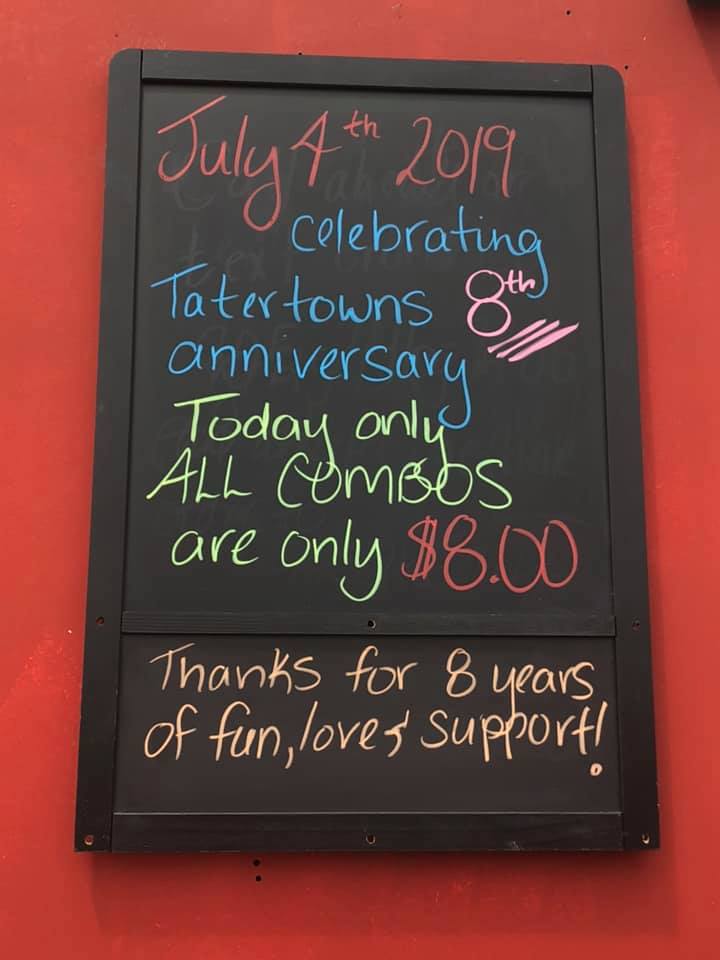 July 4th 2019
celebrating
Tatertowns 8th
anniversary
Today only
ALL COMBOS
are only $8.00
Thanks for 8 years
of fun, love & support!